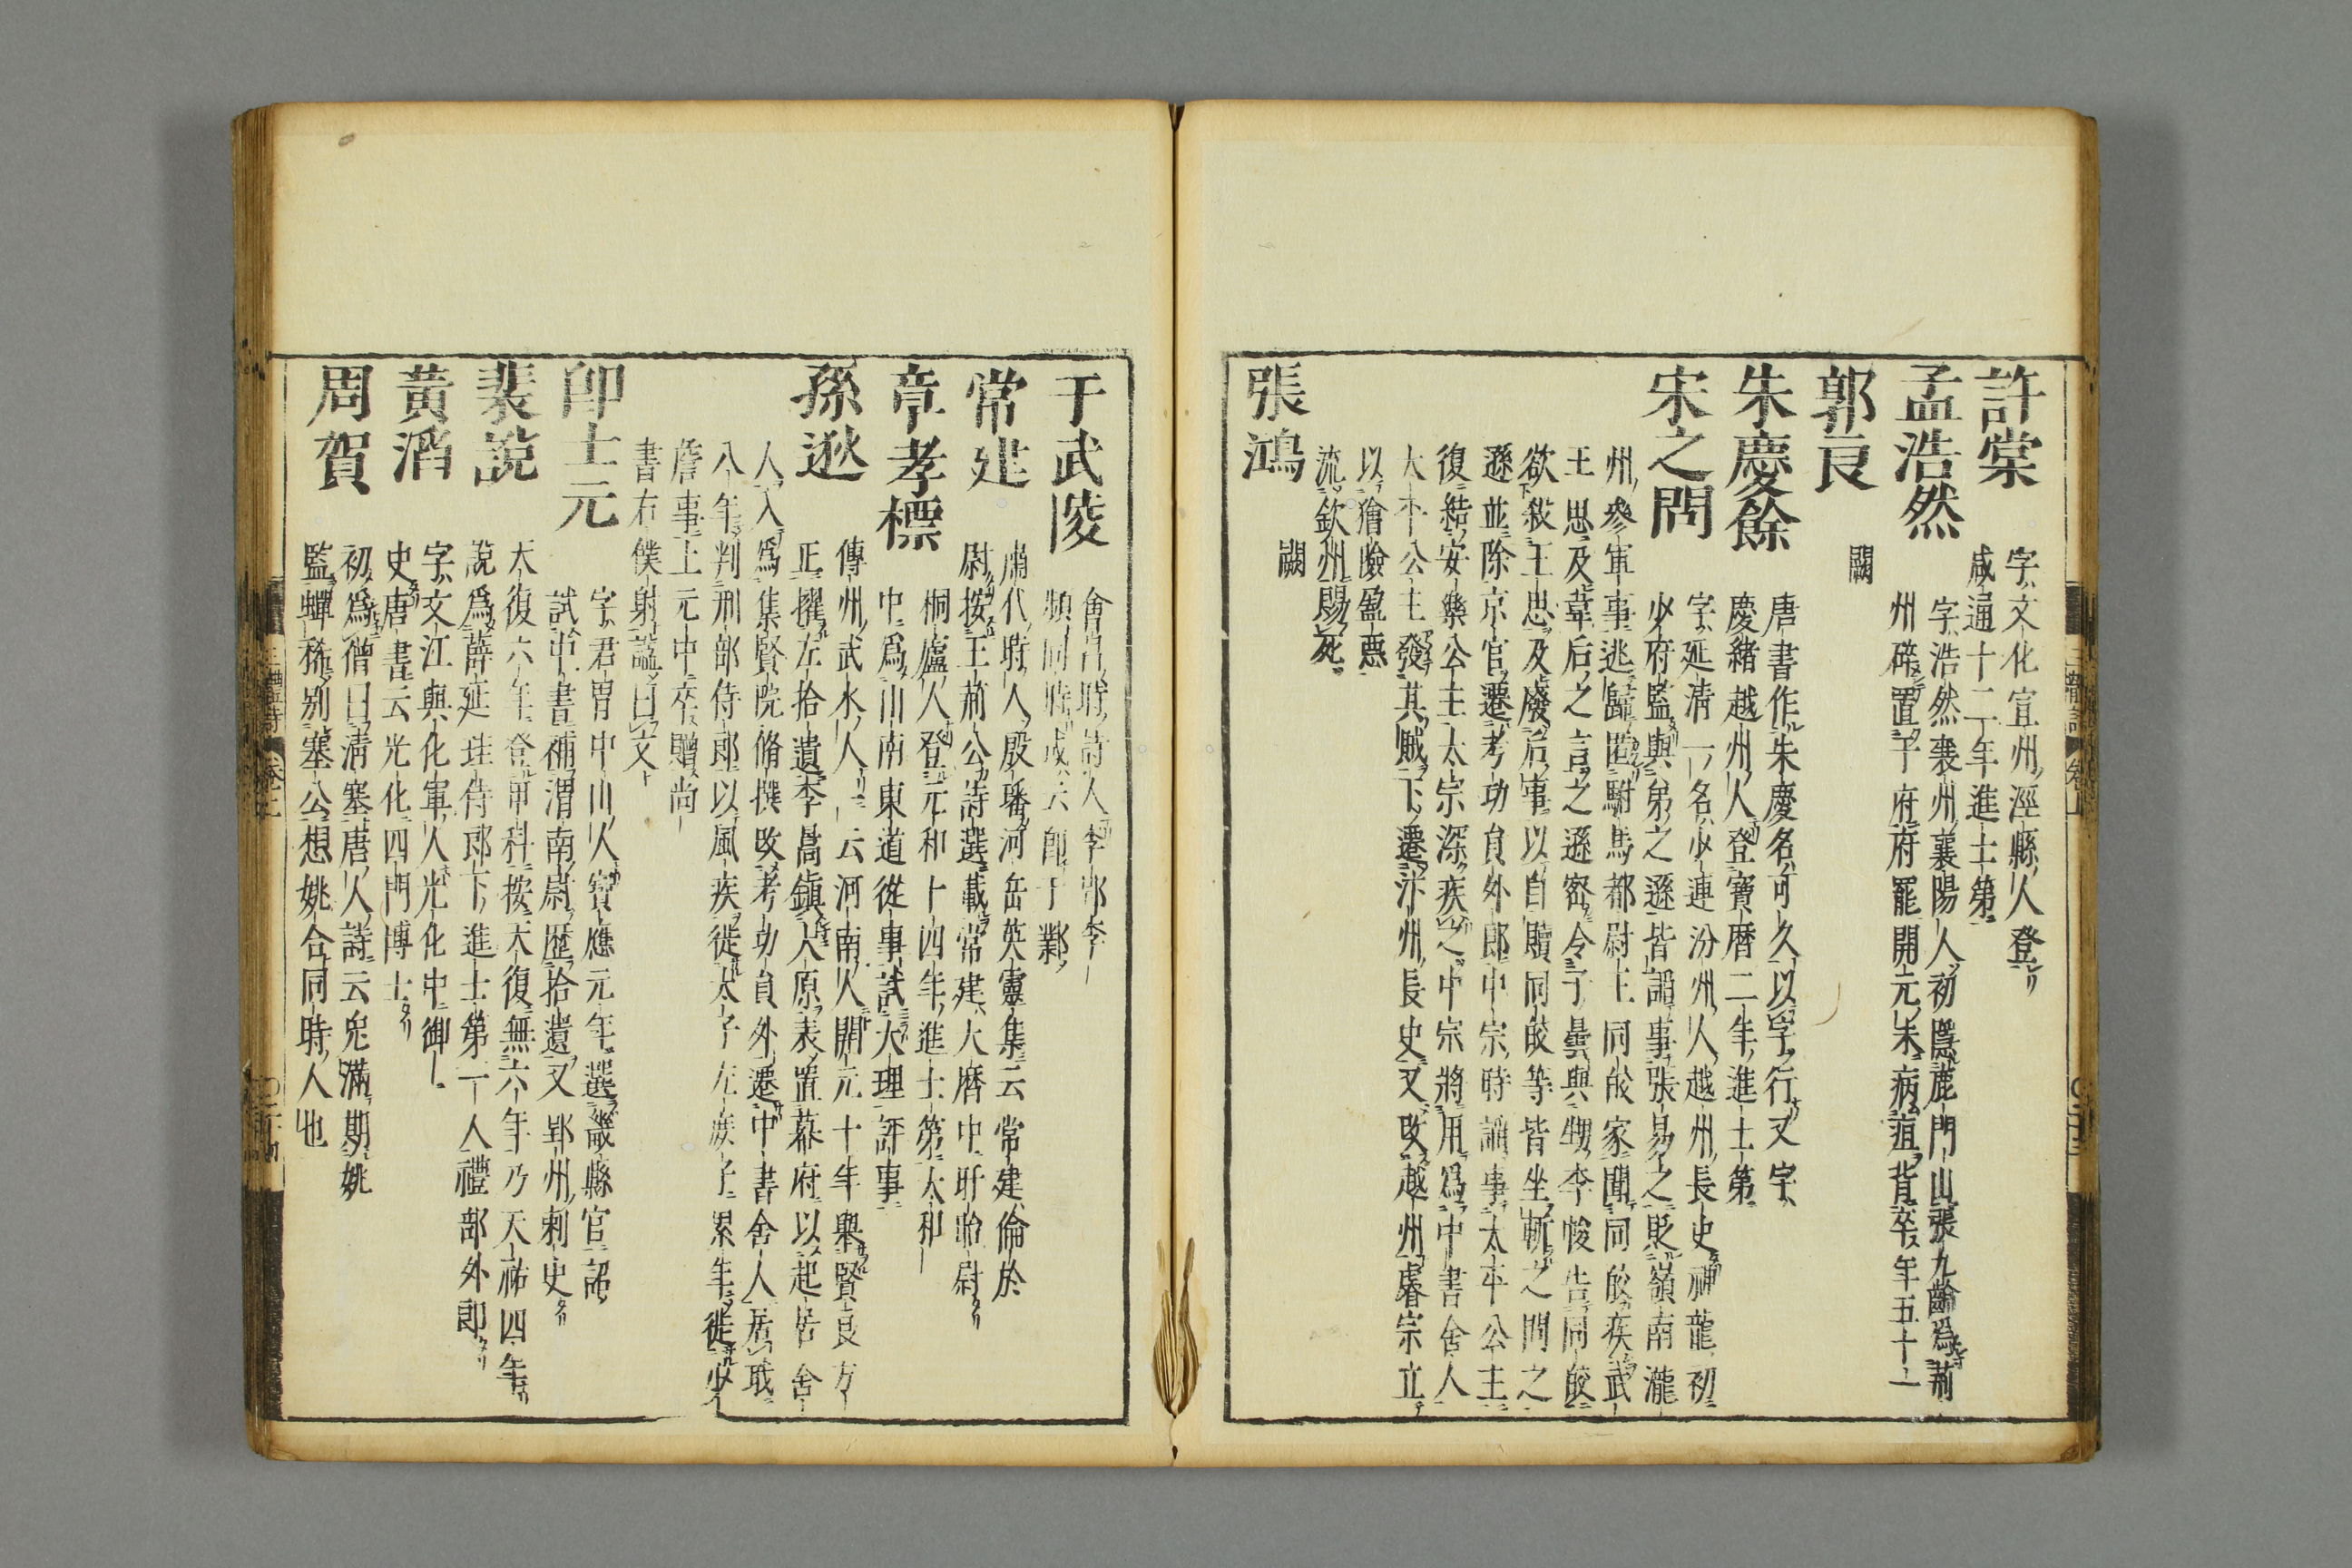 許棠
字文化宣州涇縣人登
咸通十二年進士第
孟浩然
字浩然襄州襄陽人初隱鹿門山張九齡爲荊
州辟置于府府罷開元末病疽背卒年五十二
郭良
闕
朱慶餘
唐書作朱慶名可久以字行又字
慶緒越州人登寶曆二年進士第
宋之問
字延清一名少連汾州人越州長史神龍初
少府監與弟之遜皆諂事張易之貶嶺南瀧
州參軍事逃歸匿駙馬都尉王同皎家聞同皎疾武
王思及韋后之言之遜密令子曇與甥李悛告同皎
欲殺王思及廢后事以自贖同皎等皆坐斬之問之
遜並除京官遷考功員外郎中宗時諂事太平公主
復結安樂公主太宗深疾之中宗將用爲中書舍人
太平公主發其贓下遷汴州長史又改越州睿宗立
以獪險盈惡
流欽州賜死
張鴻
闕
于武陵
會昌時詩人李郢李
頻同時或云即于鄴
常建
肅代時人殷璠河岳英靈集云常建倫於
尉按王荊公詩選載常建大曆中盱眙尉
章孝標
桐廬人登元和十四年進士第太和
中爲山南東道從事試大理評事
孫逖
傳州武水人一云河南人開元十年舉賢良方
正擢左拾遺李暠鎮太原表置幕府以起居舍
人入爲集賢院脩撰改考功員外遷中書舍人居職
八年判刑部侍郎以風疾徙太子左庶子累年徙少
詹事上元中卒贈尚
書右僕射謚曰文
郎士元
字君冑中山人寶應元年選畿縣官詔
試中書補渭南尉歷拾遺又郢州刺史
裴說
天復六年登甲科按天復無六年乃天祐四年
說爲薛延珪侍郎下進士第一人禮部外郎
黃滔
字文江與化軍人光化中御
史唐書云光化四門博士
周賀
初爲僧曰清塞唐人詩云兒滿期姚
監蟬稀別塞公想姚合同時人也